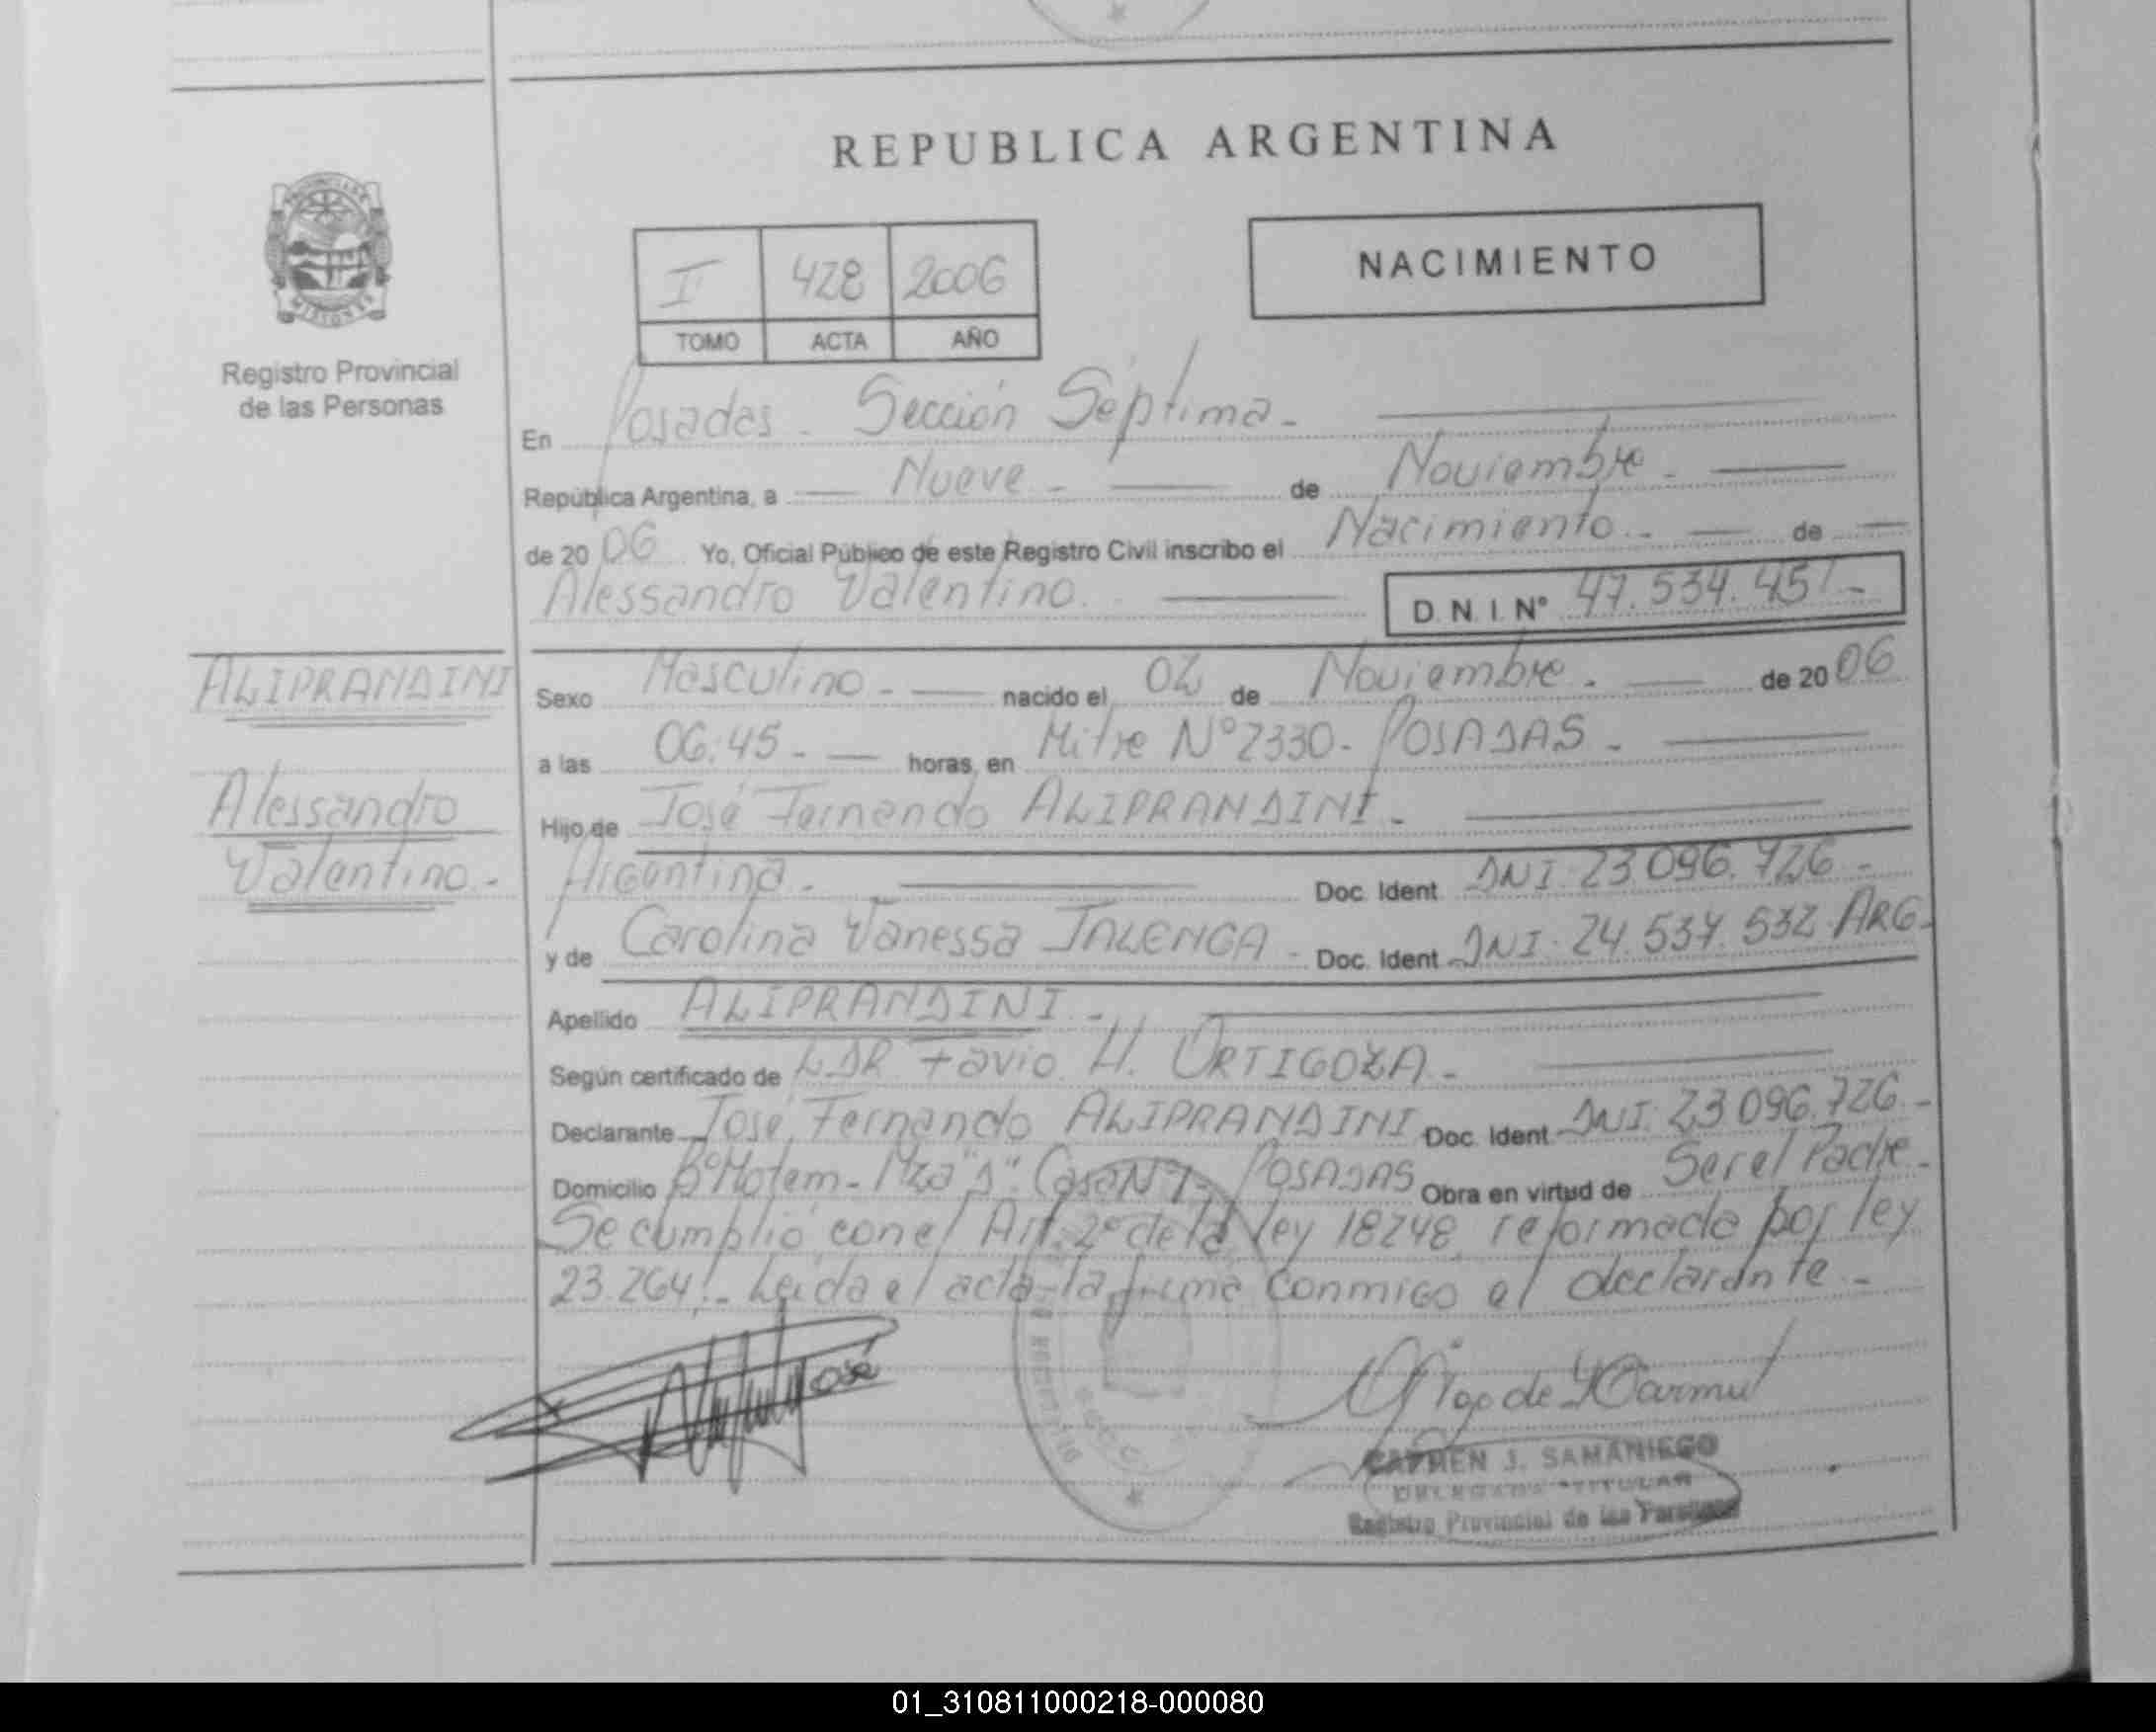 REPUBLICA ARGENTINA
NACIMIENTO
I 428 2006
TOMO ACTA AÑO
Registro Provincial
de las Personas
En Posadas - Sección Séptima -
República Argentina, a Nueve - de Noviembre -
de 2006 Yo, Oficial Público de este Registro Civil inscribo el Nacimiento - de
Alessandro Valentino D.N.I. Nº 47.534.451-
ALIPRANDINI
Alessandro
Valentino -
Sexo Masculino - nacido el 02 de Noviembre - de 2006
a las 06:45 - horas, en Mitre Nº 2330 - POSADAS -
Hijo de José Fernando ALIPRANDINI -
Argentina - Doc. Ident DNI 23.096.726 -
y de Carolina Vanessa - Doc. Ident DNI. 24.537.532 ARG -
Apellido ALIPRANDINI -
Según certificado de Favio H. ORTIGOZA -
Declarante José Fernando ALIPRANDINI Doc. Ident DNI. 23.096.726 -
Domicilio Bº - Mza "D" Casa Nº POSADAS Obra en virtud de Ser el Padre -
Se cumplió con el Art. 2º de la ley 18248 reformado por ley
23.264 - Leída el acta la firma conmigo el declarante -
José
CARMEN J. SAMANIEGO
DELEGADA TITULAR
Registro Provincial de las Personas
01_310811000218-000080